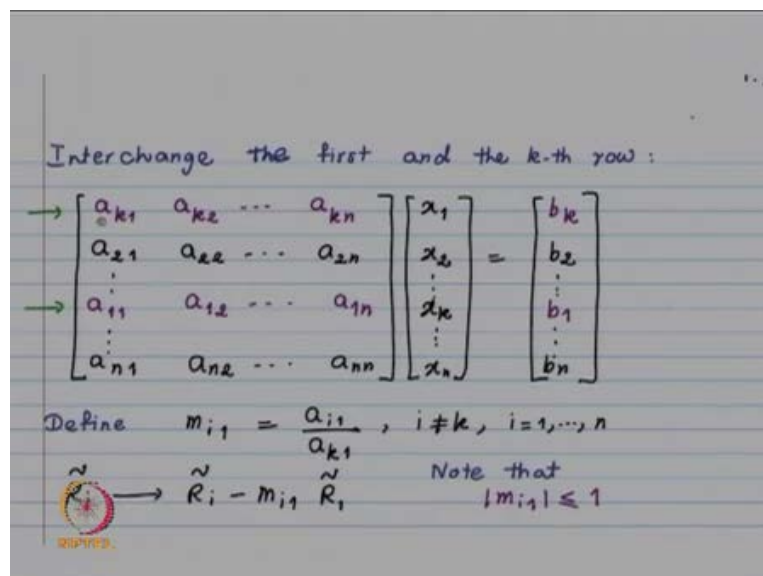 Interchange the first and the k-th row :
→ [ a_{k1} a_{k2} ... a_{kn} ] [ x_1 ] [ b_k ]
a_{21} a_{22} ... a_{2n} x_2 = b_2
⋮ ⋮ ⋮
→ a_{11} a_{12} ... a_{1n} x_k b_1
⋮ ⋮ ⋮
a_{n1} a_{n2} ... a_{nn} x_n b_n
Define m_{i1} = a_{i1} / a_{k1} , i ≠ k, i=1,..., n
R̃_i → R̃_i - m_{i1} R̃_1 Note that
|m_{i1}| ≤ 1